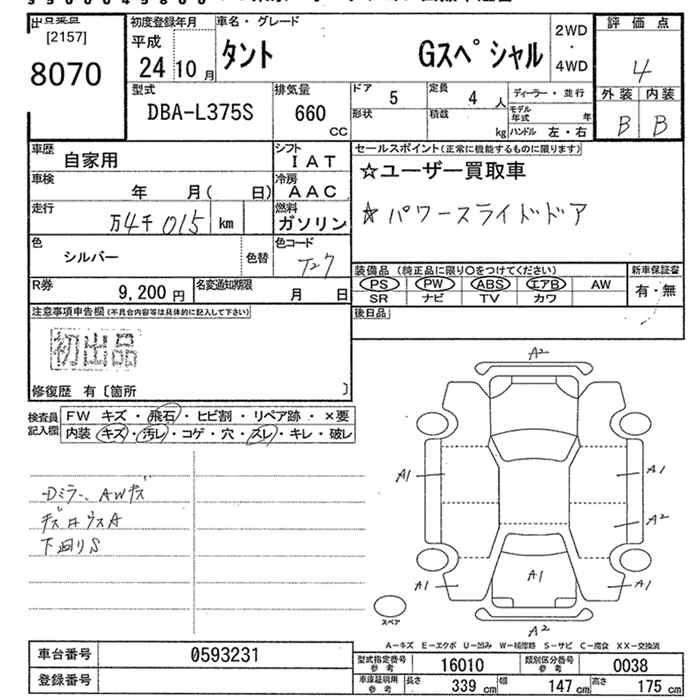 [2157]
8070
初度登録年月
平成
24 10 月
車名・グレード
タント Gスペシャル
2WD
・
4WD
評価点
4
外装 内装
B B
型式
DBA-L375S
排気量
660
CC
ドア
5
定員
4 人
形状
積載
kg
ディーラー・並行
モデル年式 年
ハンドル 左・右
車歴
自家用
シフト
IAT
車検
年 月( 日)
冷房
AAC
走行
万4千015 km
燃料
ガソリン
色
シルバー
色替
色コード
T27
R券
9,200 円
名変通知期限
月 日
セールスポイント(正常に機能するものに限ります)
☆ユーザー買取車
☆パワースライドドア
装備品 (純正品に限り○をつけてください)
PS PW ABS エアB AW
SR ナビ TV カワ
新車保証書
有・無
後日品
注意事項申告欄(不具合内容等は具体的に記入して下さい)
初出品
修復歴 有〔箇所 〕
検査員記入欄
FW キズ・飛石・ヒビ割・リペア跡・×要
内装 キズ・汚レ・コゲ・穴・スレ・キレ・破レ
Dミラー、AWキズ
下回りS
A2
A1
A1
A2
A1
A1
A1
A2
スペア
A-キズ E-エクボ U-凹み W-補修跡 S-サビ C-腐食 XX-交換済
車台番号 0593231
登録番号
型式指定番号参考 16010
類別区分番号参考 0038
車庫証明用参考 長さ 339 cm 幅 147 cm 高さ 175 cm